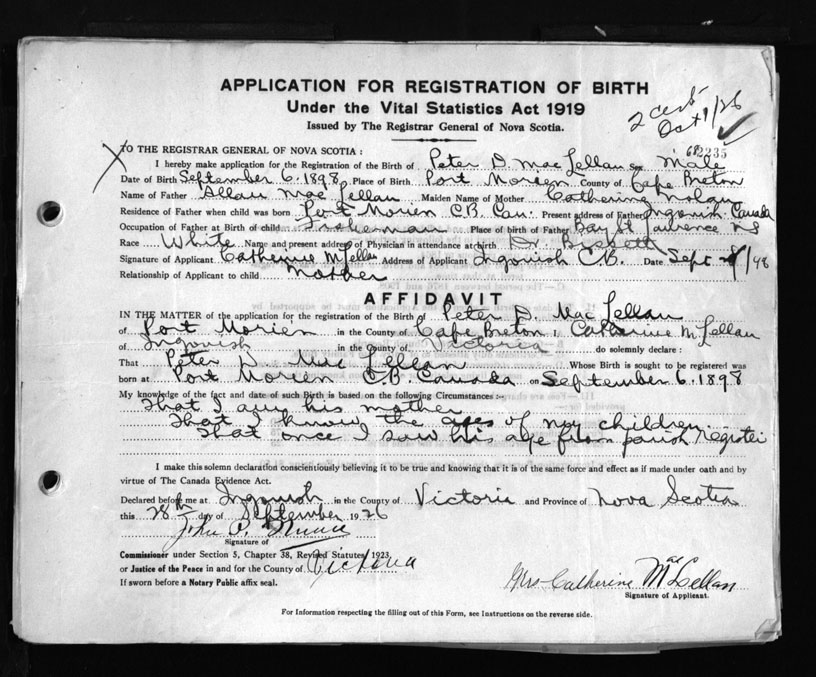 APPLICATION FOR REGISTRATION OF BIRTH
Under the Vital Statistics Act 1919
Issued by The Registrar General of Nova Scotia.
2 cert
Oct 1/26
TO THE REGISTRAR GENERAL OF NOVA SCOTIA:
682335
I hereby make application for the Registration of the Birth of Peter D. MacLellan Sex Male
Date of Birth September 6. 1898 Place of Birth Port Morien County of Cape Breton
Name of Father Allan MacLellan Maiden Name of Mother Catherine Nolan
Residence of Father when child was born Port Morien C.B. Can. Present address of Father Ingonish Canada
Occupation of Father at Birth of child Fisherman Place of birth of Father Bay St Laurence NS
Race White Name and present address of Physician in attendance at birth Dr. Bissett
Signature of Applicant Catherine McLellan Address of Applicant Ingonish C.B. Date Sept
Relationship of Applicant to child Mother
AFFIDAVIT
IN THE MATTER of the application for the registration of the Birth of Peter D. MacLellan
of Port Morien in the County of Cape Breton I, Catherine McLellan
of Ingonish in the County of Victoria do solemnly declare:
That Peter D. MacLellan Whose Birth is sought to be registered was
born at Port Morien C.B. Canada on September 6. 1898
My knowledge of the fact and date of such Birth is based on the following Circumstances:-
That I am his mother
That I know the ages of my children.
That once I saw his age from parish register
I make this solemn declaration conscientiously believing it to be true and knowing that it is of the same force and effect as if made under oath and by
virtue of The Canada Evidence Act.
Declared before me at Ingonish in the County of Victoria and Province of Nova Scotia
this 28th day of September 1926
John P.
Signature of
Commissioner under Section 5, Chapter 38, Revised Statutes 1923,
or Justice of the Peace in and for the County of Victoria
If sworn before a Notary Public affix seal.
Mrs Catherine MacLellan
Signature of Applicant.
For Information respecting the filling out of this Form, see Instructions on the reverse side.